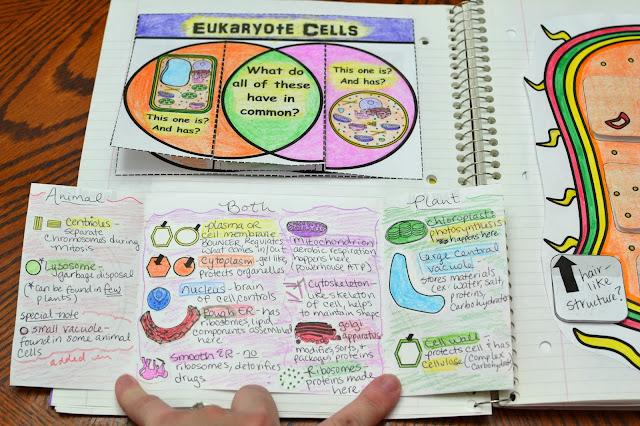 EUKARYOTE CELLS
This one is?
And has?
What do
all of these
have in
common?
This one is?
And has?
Animal
Centrioles
separate
chromosomes during
mitosis
Lysosome-
garbage disposal
*(can be found in few
plants)
special note
small vacuole-
found in some animal
cells
added in
Both
plasma or
cell membrane
BOUNCER REGULATES
what comes in/out
Cytoplasm-gel like
protects organelles
nucleus-brain
of cell, controls
Rough ER-has
ribosomes, lipid
components assembled
here
Smooth ER-no
ribosomes, detoxifies
drugs
mitochondrion
aerobic respiration
happens here
(powerhouse ATP)
Cytoskeleton-
like skeleton
of cell, helps
to maintain shape
golgi
apparatus
modifies, sorts, +
packages proteins
Ribosomes-
proteins made
here
Plant
Chloroplast-
photosynthesis
happens here
large central
vacuole
stores materials
(ex: water, salt,
proteins,
carbohydrates)
Cell wall
protects cell + has
cellulose (complex
carbohydrate)
hair-
like
structure?